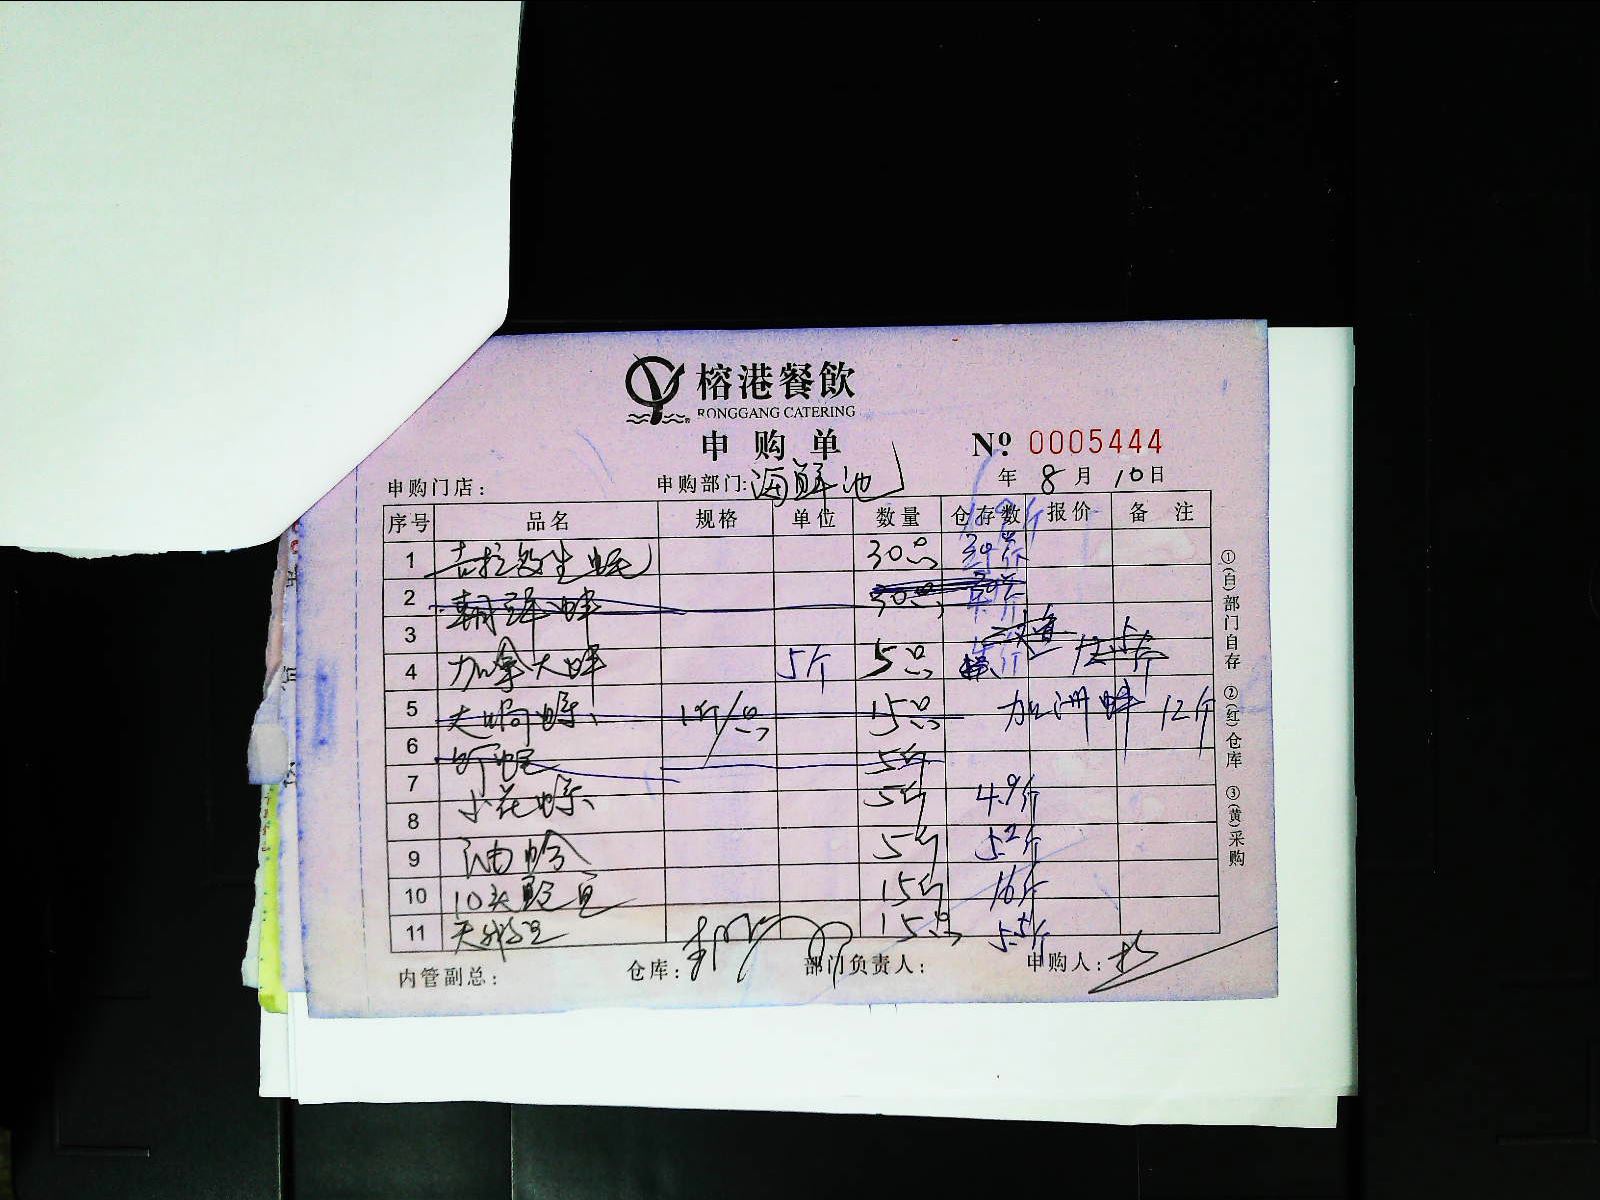 榕港餐飲
RONGGANG CATERING
申购单
№ 0005444
申购门店： 申购部门:海鲜池 年 8 月 10 日
序号 品名 规格 单位 数量 仓存数 报价 备 注
1 吉拉多生蚝 30只
2 30只
3
4 加拿大蚌 5斤 5只
5 1斤/只 15只 加洲蚌 12斤
6 5斤
7 小花螺 5斤 4.9斤
8
9 油蛤 5斤 5.2斤
10 10头鲍鱼 15斤 16斤
11 15只 5.5斤
内管副总： 仓库： 部门负责人： 申购人：
①(白)部门自存 ②(红)仓库 ③(黄)采购